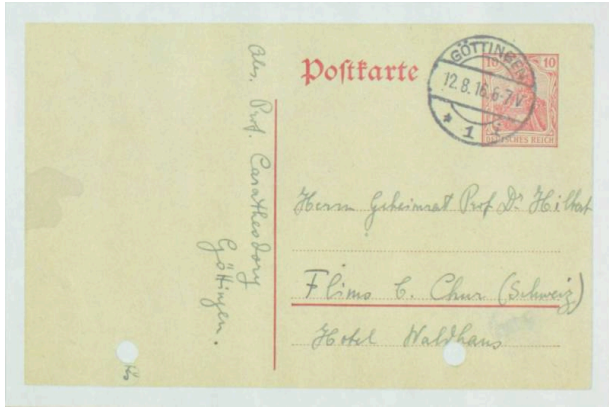 Abs. Prof. Caratheodory
Göttingen.
Postkarte
GÖTTINGEN
12.8.16.6-7V
* 1
10 10
DEUTSCHES REICH
Herrn Geheimrat Prof Dr Hilbert
Flims b. Chur (Schweiz)
Hotel Waldhaus